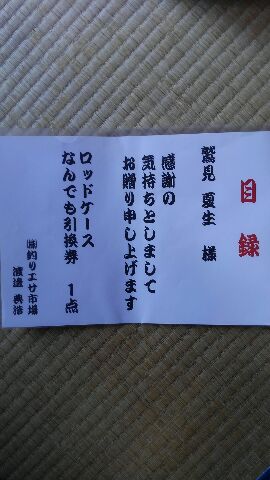 目録
鷲見 夏生 様
感謝の
気持ちとしまして
お贈り申し上げます
ロッドケース
なんでも引換券 1点
㈱釣りエサ市場
渡邉 典浩